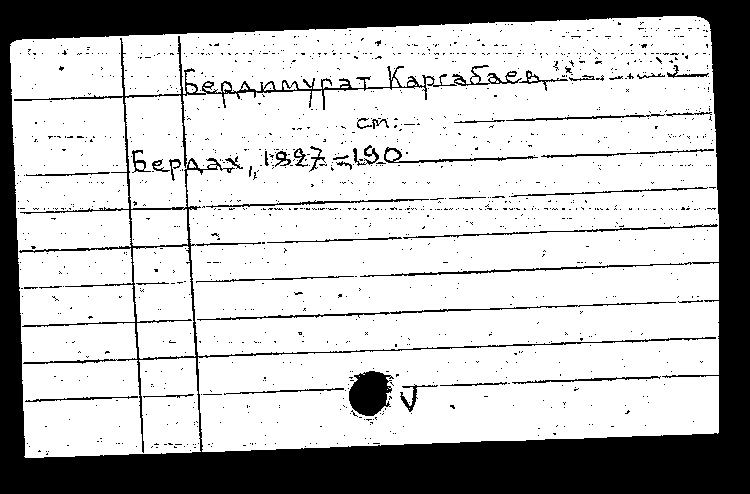 Бердимурат Каргабаев,
см.:
Бердах, 1827-190
V